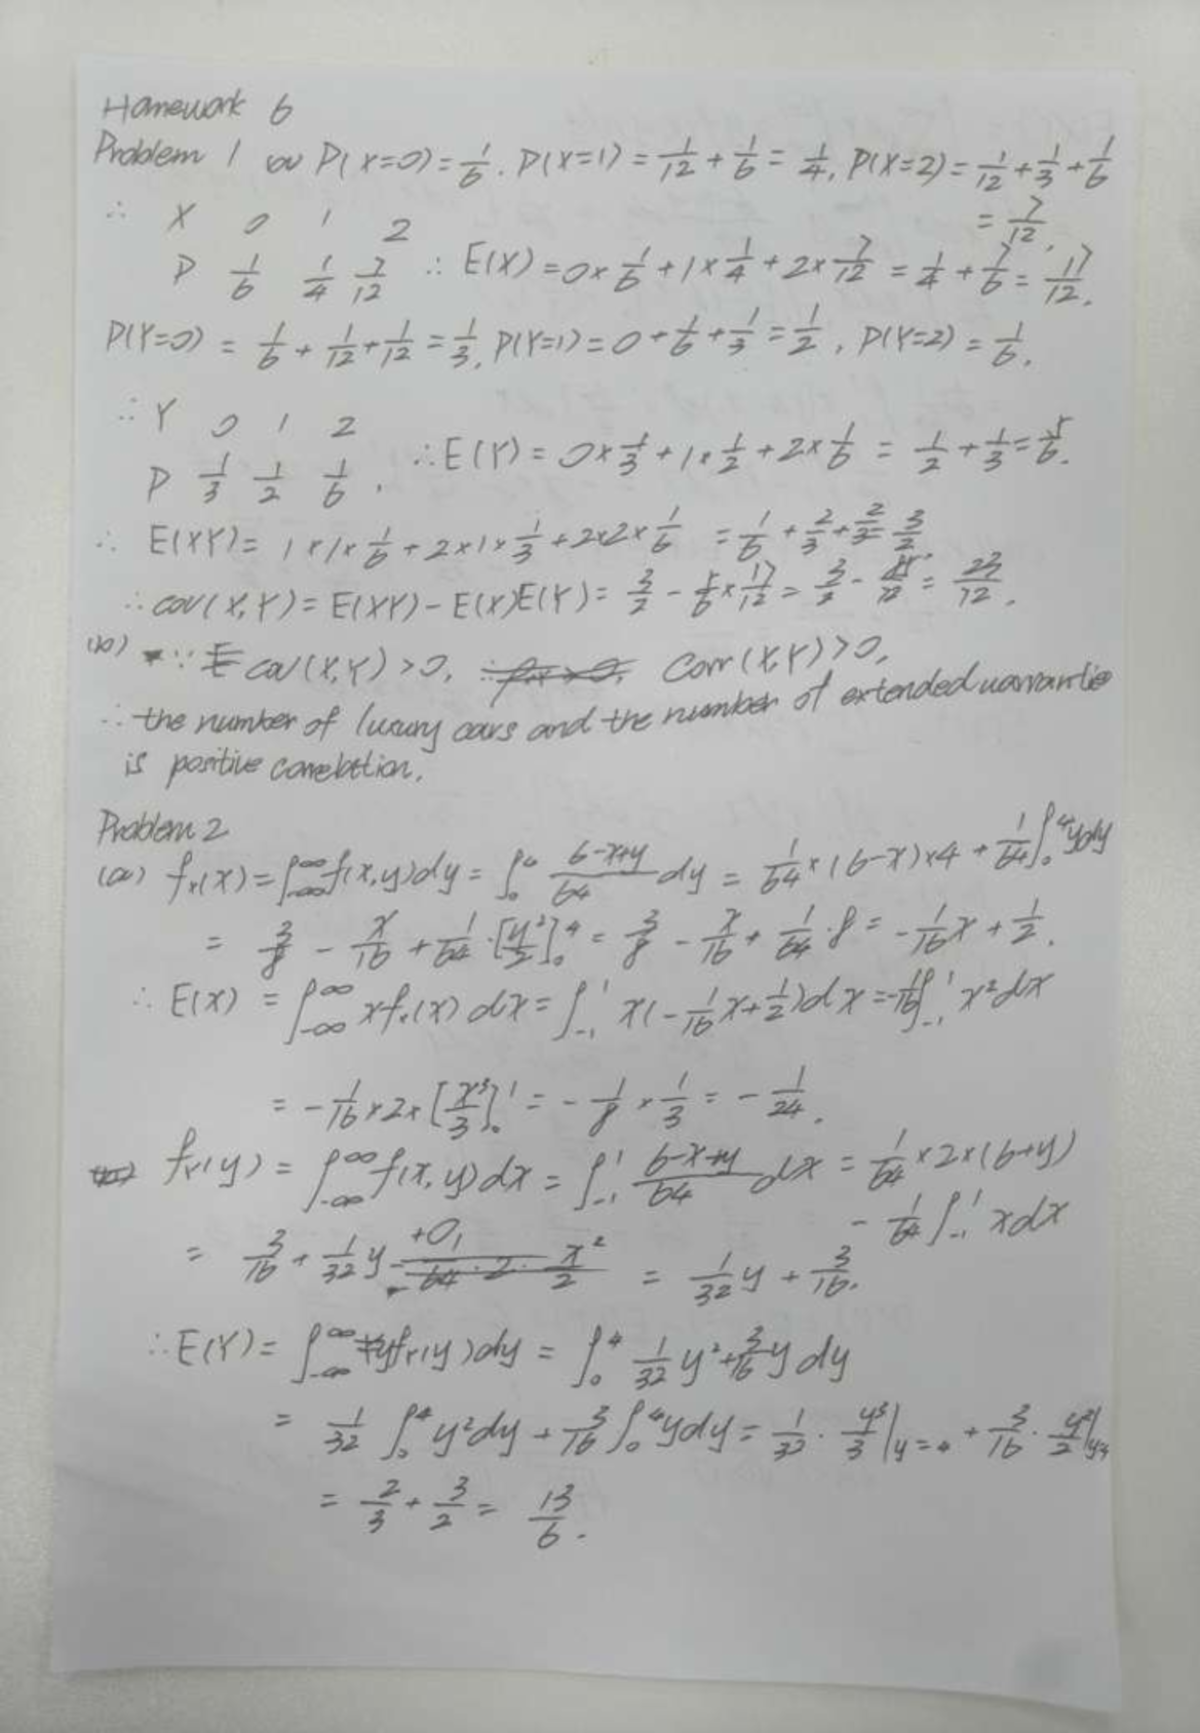 Homework 6
Problem 1 (a) P(X=0)=1/6. P(X=1)=1/12+1/6=1/4, P(X=2)=1/12+1/3+1/6
=7/12.
∴ X 0 1 2
P 1/6 1/4 7/12 ∴ E(X)=0×1/6+1×1/4+2×7/12=1/4+7/6=17/12.
P(Y=0)=1/6+1/12+1/12=1/3, P(Y=1)=0+1/6+1/3=1/2, P(Y=2)=1/6.
∴ Y 0 1 2
P 1/3 1/2 1/6. ∴E(Y)=0×1/3+1×1/2+2×1/6=1/2+1/3=5/6.
∴ E(XY)=1×1×1/6+2×1×1/3+2×2×1/6=1/6+2/3+2/3=3/2
∴cov(X,Y)=E(XY)-E(X)E(Y)=3/2-5/6×17/12=3/2-85/72=23/72.
(b) ∵ cov(X,Y)>0, Corr(X,Y)>0,
∴ the number of luxury cars and the number of extended warrantie
is positive correlation.
Problem 2
(a) fx(x)=∫_{-∞}^{∞}f(x,y)dy=∫_0^4 (6-x+y)/64 dy=1/64×(6-x)×4+1/64∫_0^4 ydy
=3/8-x/16+1/64·[y²/2]_0^4=3/8-x/16+1/64·8=-1/16x+1/2.
∴ E(X)=∫_{-∞}^{∞}xfx(x)dx=∫_{-1}^1 x(-1/16x+1/2)dx=-1/16∫_{-1}^1 x²dx
=-1/16×2×[x³/3]_0^1=-1/8×1/3=-1/24.
fY(y)=∫_{-∞}^{∞}f(x,y)dx=∫_{-1}^1 (6-x+y)/64 dx=1/64×2×(6+y)
-1/64∫_{-1}^1 xdx
=3/16+1/32y+0,=1/32y+3/16.
∴E(Y)=∫_{-∞}^{∞}yfY(y)dy=∫_0^4 1/32y²+3/16y dy
=1/32∫_0^4 y²dy+3/16∫_0^4 ydy=1/32·y³/3|y=4+3/16·y²/2|y=4
=2/3+3/2=13/6.